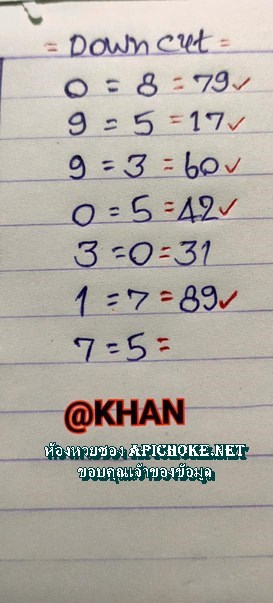 = Down cut =
0 = 8 = 79✓
9 = 5 = 17✓
9 = 3 = 60✓
0 = 5 = 42✓
3 = 0 = 31
1 = 7 = 89✓
7 = 5 =
@KHAN
ห้องหวยซอง APICHOKE.NET
ขอบคุณเจ้าของข้อมูล